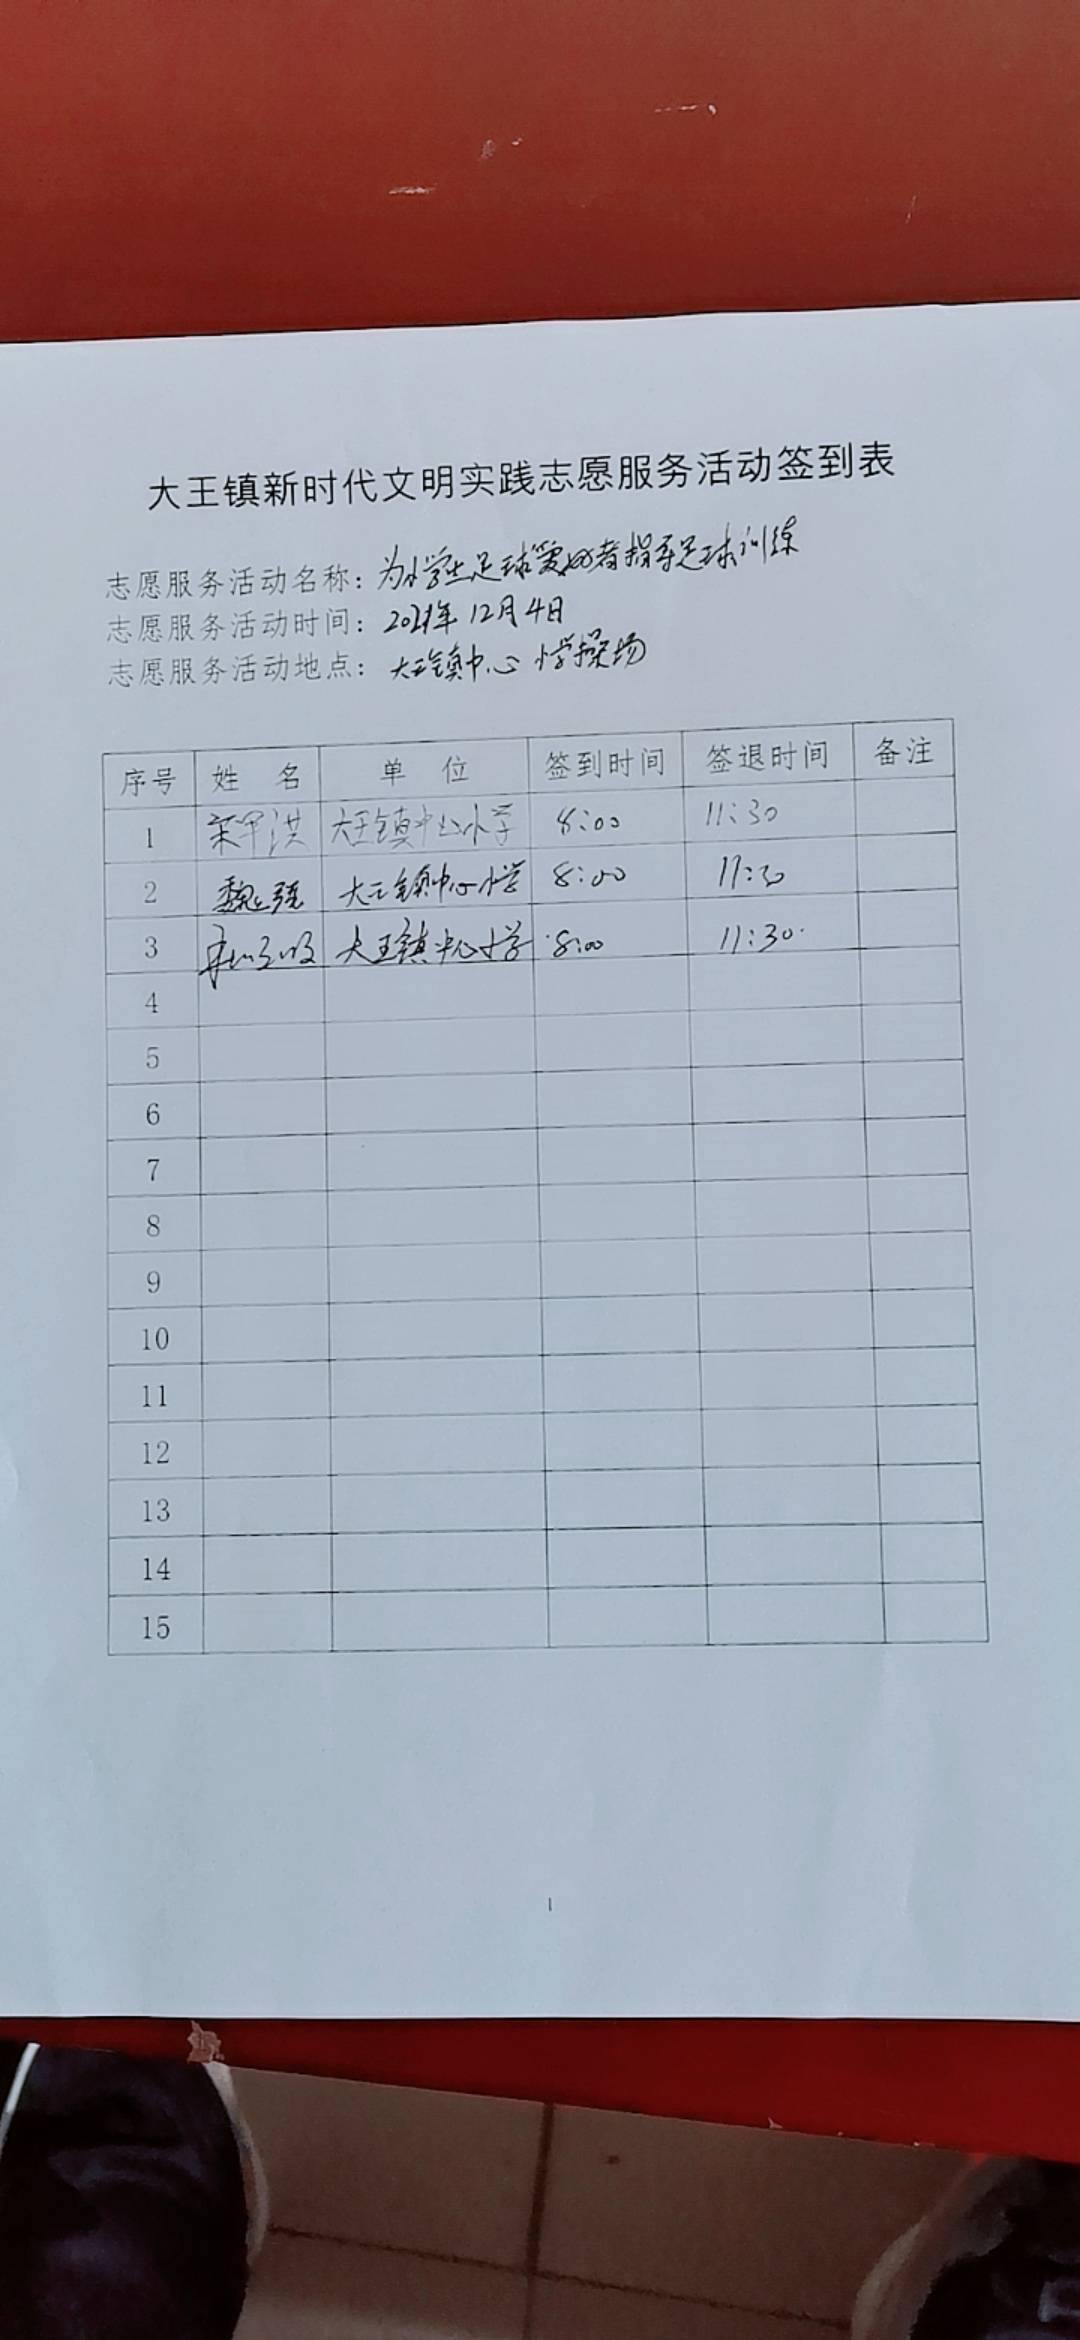 大王镇新时代文明实践志愿服务活动签到表
志愿服务活动名称：为小学生足球爱好者指导足球训练
志愿服务活动时间：2021年12月4日
志愿服务活动地点：大王镇中心小学操场
序号 姓 名 单 位 签到时间 签退时间 备注
1 大王镇中心小学 8:00 11:30
2 魏强 大王镇中心小学 8:00 11:30
3 大王镇中心小学 8:00 11:30
4
5
6
7
8
9
10
11
12
13
14
15
1